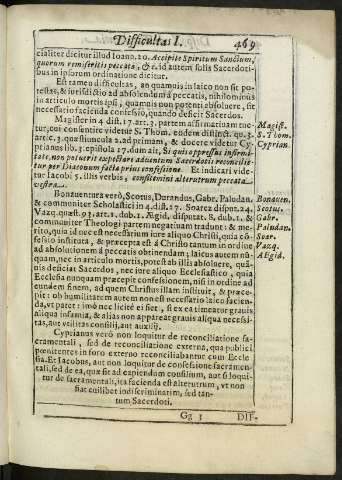 Difficultas I. 469
cialiter dicitur illud Ioann. 20. Accipite Spiritum Sanctum,
quorum remiseritis peccata, &c. id autem solis Sacerdoti-
bus in ipsorum ordinatione dicitur.
Est tamen difficultas, an quamuis in laico non sit po-
testas, & iurisdictio ad absoluendū à peccatis, nihilominus
in articulo mortis ipsi, quamuis non potenti absoluere, sit
necessariò facienda confessio, quando deficit Sacerdos.
Magister in 4. dist. 17. art. 3. partem affirmatiuam tue-
tur, cui consentire videtur S. Thom. eodem distinct. qu. 3.
artic. 3. quæstiuncula 2. ad primum, & docere videtur Cy-
prianus lib. 3. epistola 17. dum ait, Si quis oppressus infirmi-
tate, non potuerit expectare aduentum Sacerdotis reconcilie-
tur per Diaconum facta prius confessione. Et indicari vide-
tur Iacobi 5. illis verbis, confitemini alterutrum peccata
vestra.
Magist.
S. Thom.
Cyprian.
Bonauentura verò, Scotus, Durandus, Gabr. Paludan.
& communiter Scholastici in 4. dist. 17. Soarez disput. 24.
Vazq. quæst. 93. art. 1. dub. 1. Ægid, disputat. 8. dub. 1. &
communiter Theologi partem negatiuam tradunt: & me-
ritò, quia ex nullo seu naturali seu iure aliquo Christi, quia cō-
fessio instituta, & præcepta est à Christo tantum in ordine
ad absolutionem à peccatis obtinendam; laicus autem nū-
quam, nec in articulo mortis, potest ab illis absoluere, quā-
uis deficiat Sacerdos, nec iure aliquo Ecclesiastico, quia
Ecclesia nunquam præcepit confessionem, nisi in ordine ad
eundem finem, ad quem Christus illam instituit, & præce-
pit: ob humilitatem autem non est necessario laico facien-
da, vt patet: imò nec licitè ei fiet, si ex ea timeatur grauis
aliqua infamia, & alias non appareat grauis aliqua necessi-
tas, aut vtilitas consilij, aut auxilij.
Bonauen.
Scotus.
Gabr.
Paludan.
Soar.
Vazq.
AEgid.
Cyprianus verò non loquitur de reconciliatione sa-
cramentali, sed de reconciliatione externa, qua publici
pœnitentes in foro externo reconciliabantur cum Eccle-
sia. Et Iacobus, aut non loquitur de confessione sacramen-
tali, sed de ea, quæ sit ad capiendum consilium, aut si loqui-
tur de sacramentali, ita facienda est alterutrum, vt non
fiat cuilibet indiscriminatim, sed tan-
tum Sacerdoti.
Gg 3 DIF-